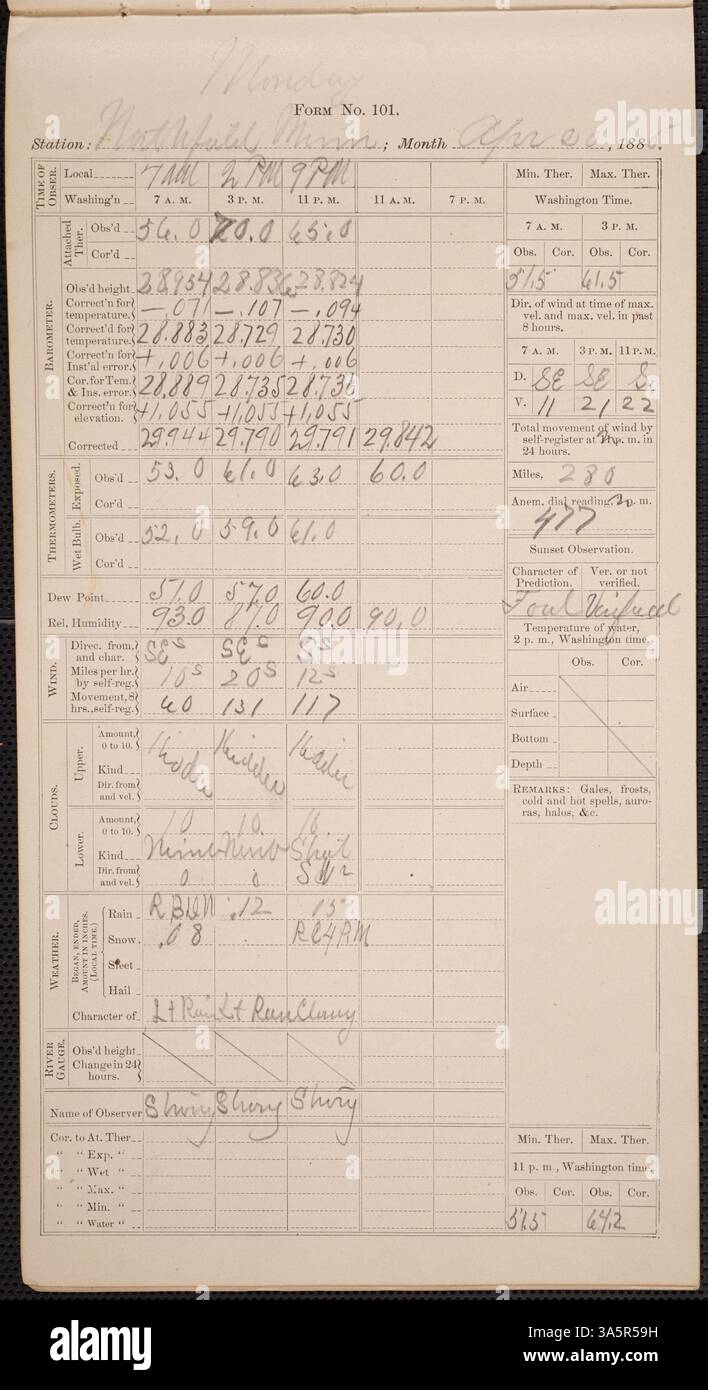 Monday
FORM NO. 101.
Station: Northfield, Minn; Month Apr 26, 1886.
TIME OF OBSER. Local 7 AM 2 PM 9 PM
Washing'n 7 A. M. 3 P. M. 11 P. M. 11 A. M. 7 P. M.
Attached Ther. Obs'd 56.0 70.0 65.0
Cor'd
BAROMETER.
Obs'd height 28.954 28.836 28.824
Correct'n for temperature. —.071 —.107 —.094
Correct'd for temperature. 28.883 28.729 28.730
Correct'n for Inst'al error. +.006 +.006 +.006
Cor. for Tem. & Ins. error. 28.889 28.735 28.736
Correct'n for elevation. +1.055 +1.055 +1.055
Corrected 29.944 29.790 29.791 29.842
THERMOMETERS.
Exposed. Obs'd 53.0 61.0 63.0 60.0
Cor'd
Wet Bulb. Obs'd 52.0 59.0 61.0
Cor'd
Dew Point 51.0 57.0 60.0
Rel. Humidity 93.0 87.0 90.0 90.0
WIND.
Direc. from, and char. SE s SE s S s
Miles per hr. by self-reg. 10 s 20 s 12 s
Movement, 8 hrs., self-reg. 60 131 117
CLOUDS.
Upper. Amount, 0 to 10.
Kind Hidden Hidden Hidden
Dir. from and vel.
Lower. Amount, 0 to 10. 10 10 10
Kind Nimb Nimb Strat
Dir. from and vel. 0 0 SW 2
WEATHER.
BEGAN, ENDED, AMOUNT IN INCHES. (LOCAL TIME.)
Rain .12 15
Snow .08 RE4PM
Sleet
Hail
Character of Lt Rain Lt Rain Cloudy
RIVER GAUGE.
Obs'd height
Change in 24 hours.
Name of Observer
Cor. to At. Ther
" " Exp. "
" " Wet "
" " Max. "
" " Min. "
" " Water "
Min. Ther. Max. Ther.
Washington Time.
7 A. M. 3 P. M.
Obs. Cor. Obs. Cor.
51.5 61.5
Dir. of wind at time of max. vel. and max. vel. in past 8 hours.
7 A. M. 3 P. M. 11 P. M.
D. SE SE S.
V. 11 21 22
Total movement of wind by self-register at p. m. in 24 hours.
Miles, 280
Anem. dial reading, p. m.
477
Sunset Observation.
Character of Prediction. Ver. or not verified.
Foul Verified
Temperature of water, 2 p. m., Washington time.
Obs. Cor.
Air
Surface
Bottom
Depth
REMARKS: Gales, frosts, cold and hot spells, auroras, halos, &c.
Min. Ther. Max. Ther.
11 p. m., Washington time.
Obs. Cor. Obs. Cor.
51.5 64.2
alamy
Image ID: 3A5R59H
www.alamy.com